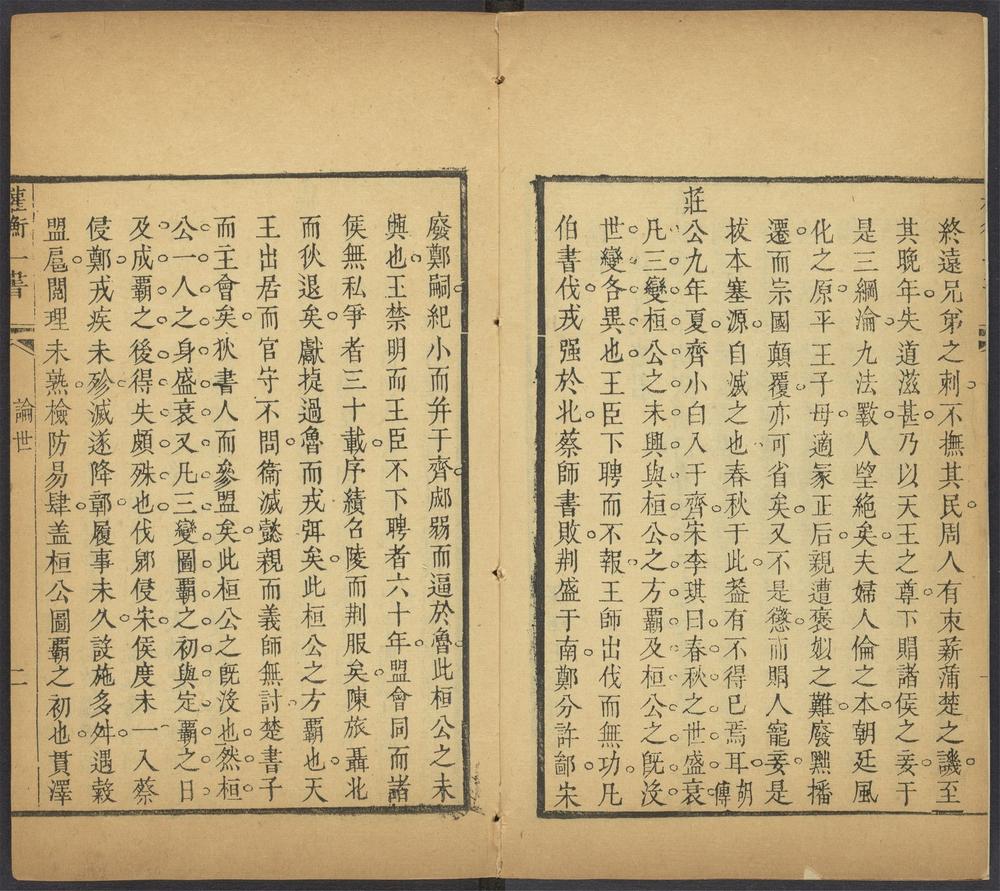 終遠兄弟之刺不撫其民周人有束薪蒲楚之譏至
其晩年失道滋甚乃以天王之尊下賵諸侯之妾于
是三綱淪九法斁人望絶矣夫婦人倫之本朝廷風
化之原平王子母適冢正后親遭褒姒之難廢黜播
遷而宗國顛覆亦可省矣又不是懲而賵人寵妾是
拔本塞源自滅之也春秋于此葢有不得已焉耳胡傳
莊公九年夏齊小白入于齊宋李琪曰春秋之世盛衰
凡三變桓公之未興與桓公之方覇及桓公之旣沒
世變各異也王臣下聘而不報王師出伐而無功凡
伯書伐戎强於北蔡師書敗荆盛于南鄭分許鄙宋
廢鄭嗣紀小而并于齊郕弱而逼於魯此桓公之未
興也王禁明而王臣不下聘者六十年盟會同而諸
侯無私爭者三十載序績召陵而荆服矣陳旅聶北
而狄退矣獻㨗過魯而戎弭矣此桓公之方覇也天
王出居而官守不問衞滅懿親而義師無討楚書子
而主會矣狄書人而參盟矣此桓公之旣沒也然桓
公一人之身盛衰又凡三變圖覇之初與定覇之日
及成覇之後得失頗殊也伐郳侵宋侯度未一入蔡
侵鄭戎疾未殄滅遂降鄣履事未久設施多舛遇榖
盟扈閲理未熟檢防易肆盖桓公圖覇之初也貫澤
論世
二